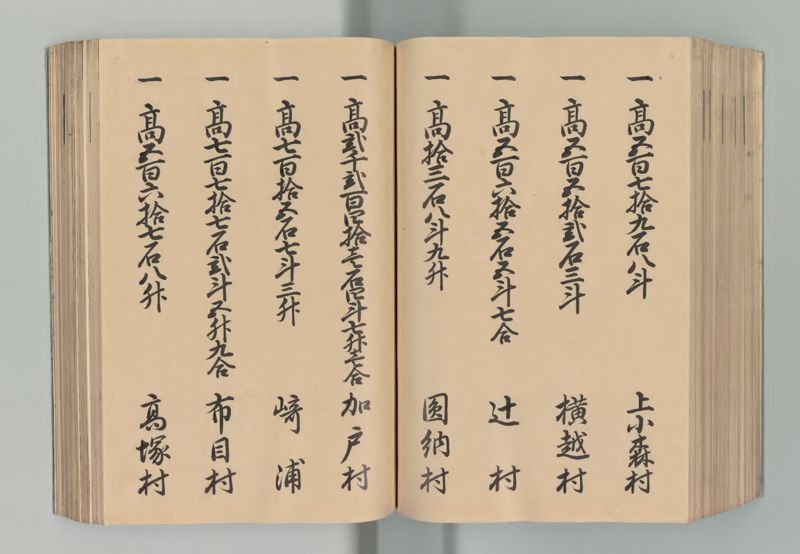 一 高五百七拾九石八斗 上小森村
一 高五百五拾弐石三斗 横越村
一 高五百六拾五石五斗七合 辻村
一 高拾三石八斗九升 圓納村
一 高弐千弐百四拾壱石四斗七升壱合 加戸村
一 高七百拾五石七斗三升 崎浦
一 高七百七拾七石弐斗五升九合 布目村
一 高五百六拾七石八升 高塚村